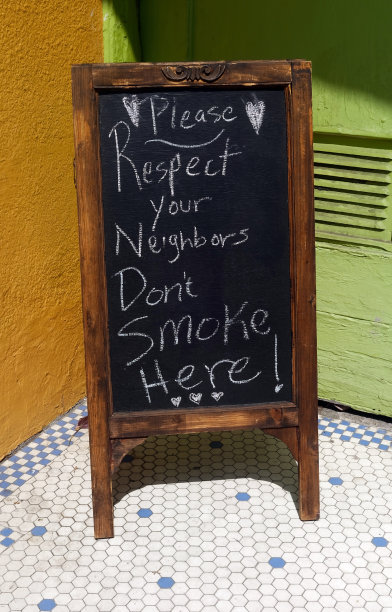 Please
Respect
your
Neighbors
Don't
Smoke
Here!